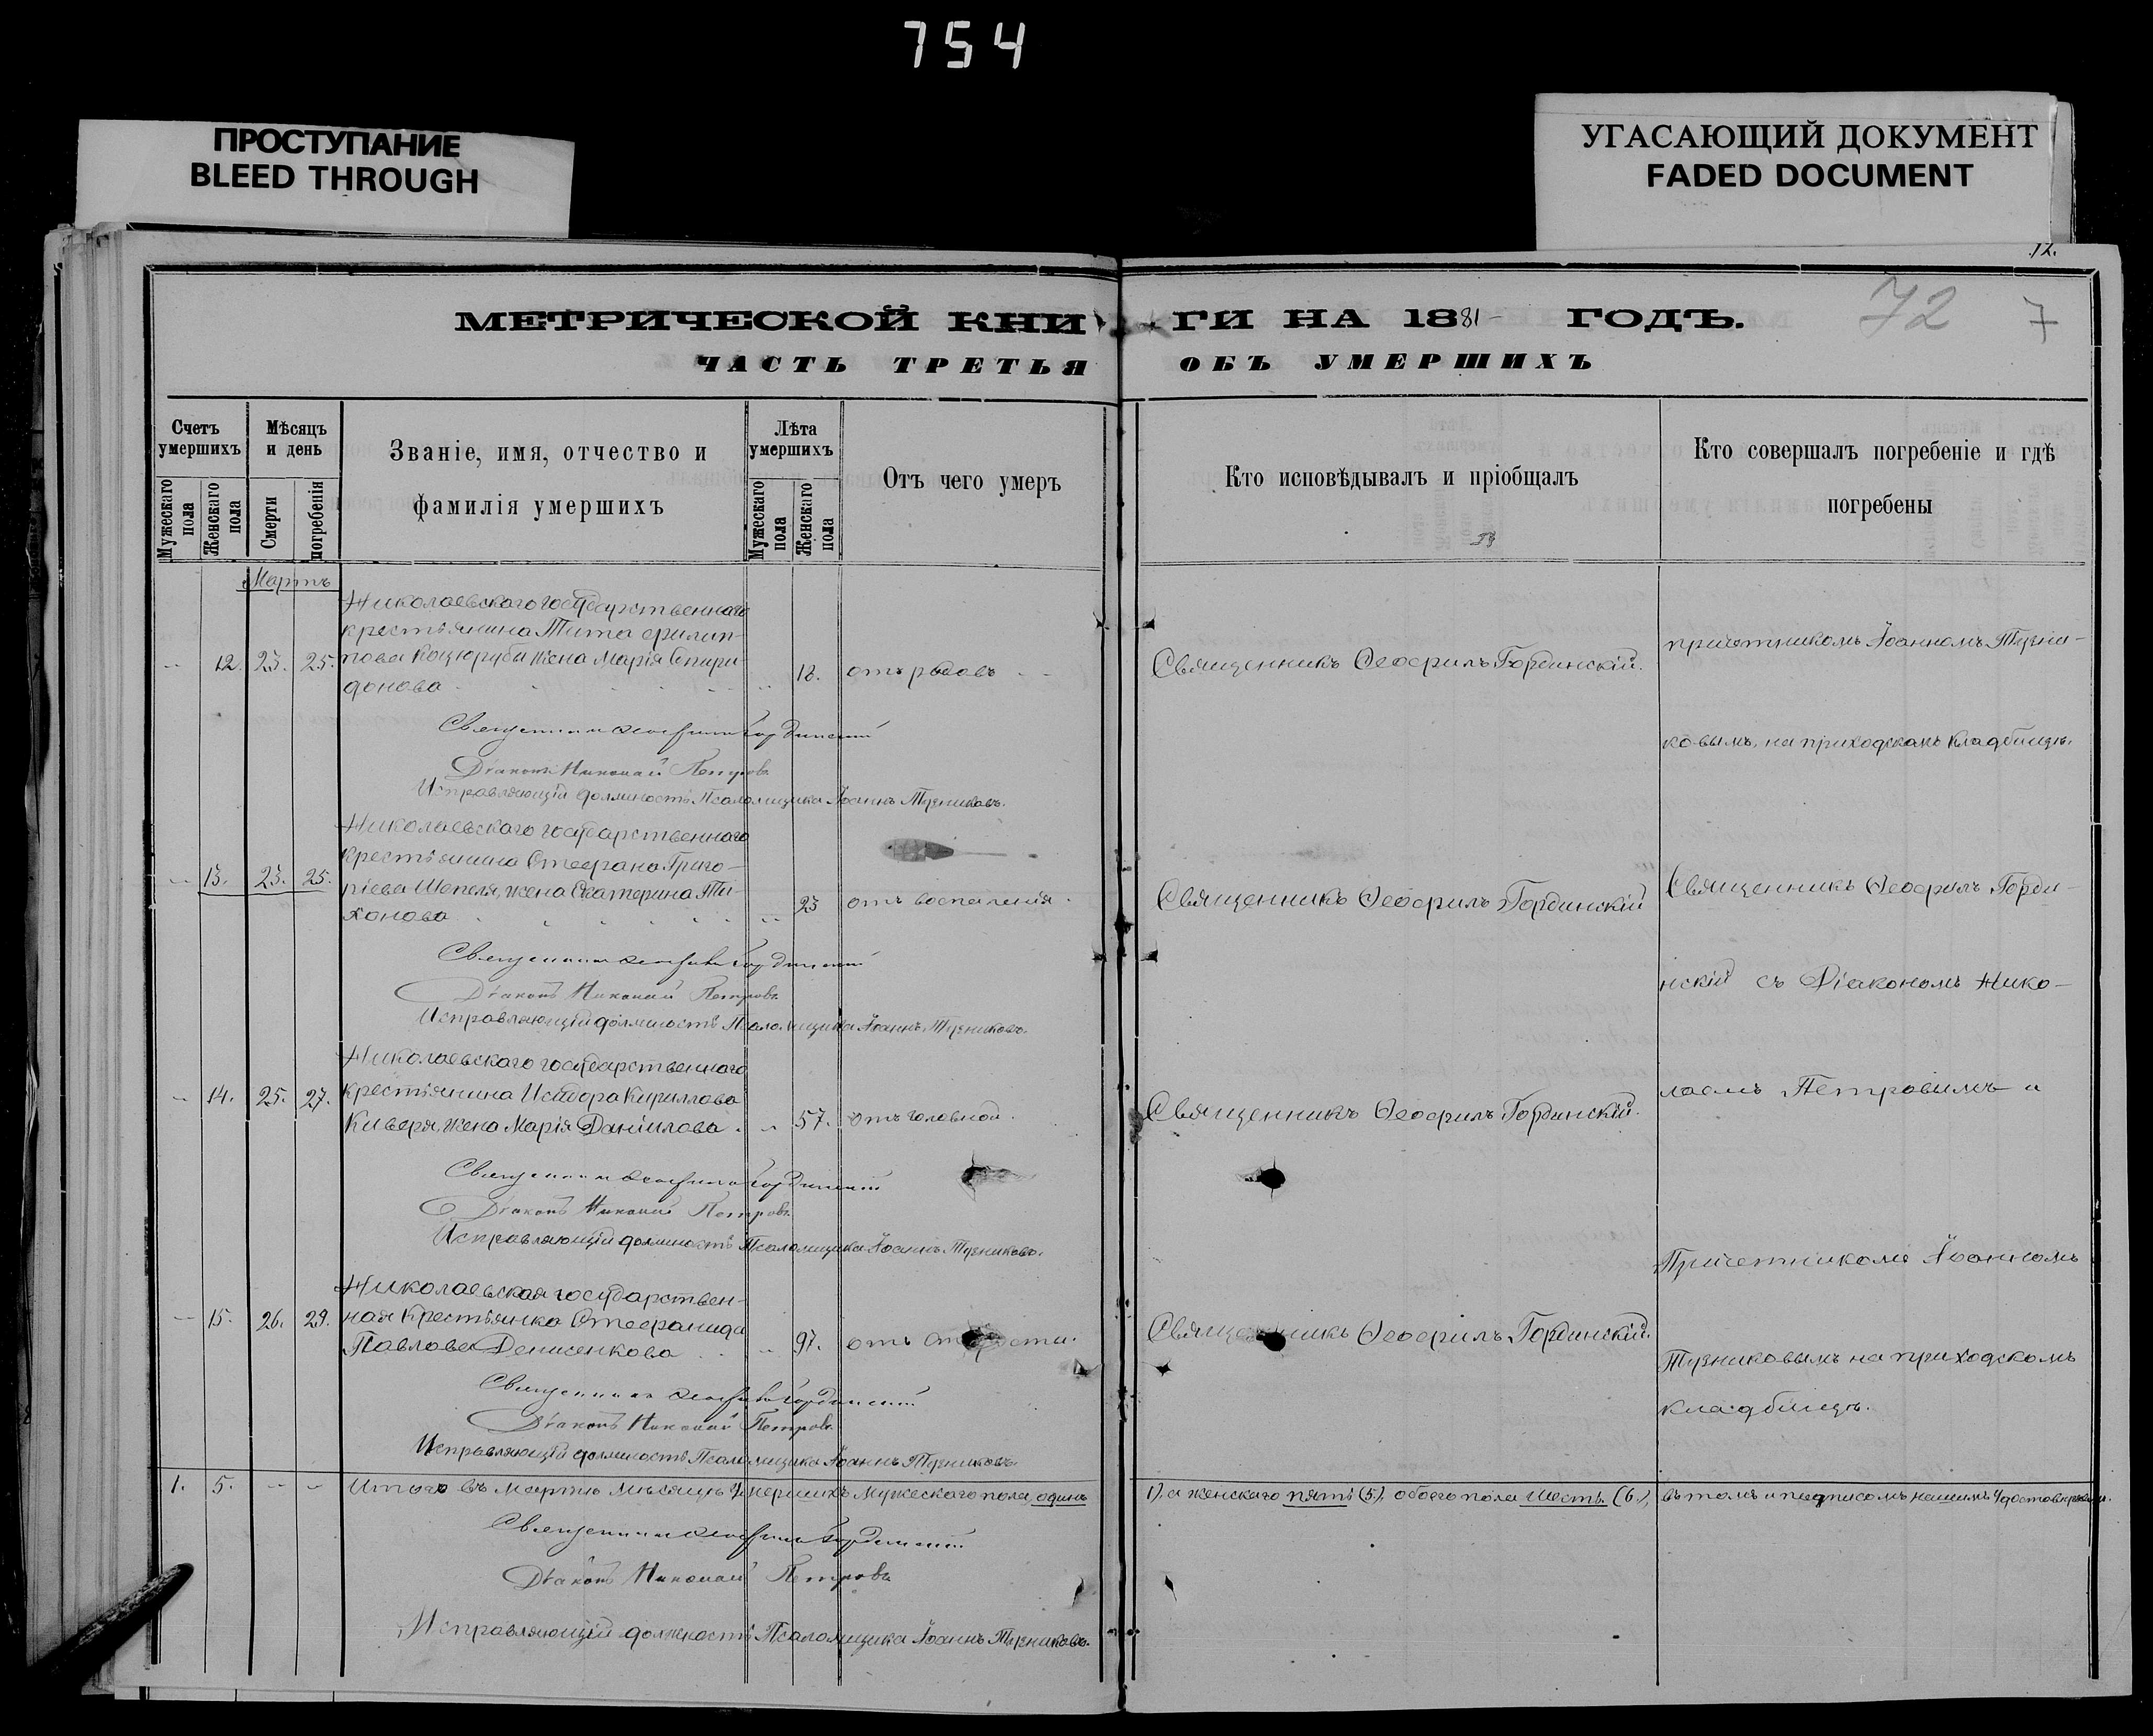 754
ПРОСТУПАНИЕ
BLEED THROUGH
УГАСАЮЩИЙ ДОКУМЕНТ
FADED DOCUMENT
12.
72
7
МЕТРИЧЕСКОЙ КНИГИ НА 1881 ГОДЪ.
ЧАСТЬ ТРЕТЬЯ ОБЪ УМЕРШИХЪ
Счетъ умершихъ
Мужескаго пола
Женскаго пола
Мѣсяцъ и день
Смерти
погребенія
Званіе, имя, отчество и
фамилія умершихъ
Лѣта умершихъ
Мужескаго пола
Женскаго пола
Отъ чего умеръ
Кто исповѣдывалъ и пріобщалъ
Кто совершалъ погребеніе и гдѣ
погребены
Мартъ
Николаевскаго государственнаго
крестьянина Тита Филип-
12. 23. 25. пова Коцюрубы жена Марія Спири- 18. отъ родовъ
донова
Священникъ Ѳеофилъ Гординскій.
причетникомъ Іоанномъ Тузни-
ковымъ, на приходскомъ кладбищѣ.
Священникъ Ѳеофилъ Гординскій
Діаконъ Николай Петровъ
Исправляющій должность Псаломщика Іоаннъ Тузниковъ.
Николаевскаго государственнаго
крестьянина Стефана Григо-
13. 23. 25. ріева Шепеля, жена Екатерина Ти- 23 отъ воспаленія.
хонова
Священникъ Ѳеофилъ Гординскій
Священникъ Ѳеофилъ Горди-
нскій съ Діакономъ Нико-
Священникъ Ѳеофилъ Гординскій
Діаконъ Николай Петровъ
Исправляющій должность Псаломщика Іоаннъ Тузниковъ.
Николаевскаго государственнаго
14. 25. 27. крестьянина Исидора Кириллова
Киверя, жена Марія Даніилова. 57. отъ головной.
Священникъ Ѳеофилъ Гординскій.
лаемъ Петровымъ и
Священникъ Ѳеофилъ Гординскій
Діаконъ Николай Петровъ
Исправляющій должность Псаломщика Іоаннъ Тузниковъ.
Николаевская государствен-
15. 26. 29. ная крестьянка Стефанида
Павлова Денисенкова 97. отъ старости.
Священникъ Ѳеофилъ Гординскій.
Причетникомъ Іоанномъ
Тузниковымъ на приходскомъ
кладбищѣ.
Священникъ Ѳеофилъ Гординскій
Діаконъ Николай Петровъ
Исправляющій должность Псаломщика Іоаннъ Тузниковъ.
1. 5. Итого въ Мартѣ мѣсяцѣ умершихъ мужескаго пола одинъ 1), а женскаго пять (5), обоего пола шесть (6), въ томъ и подписомъ нашимъ удостовѣряемъ.
Священникъ Ѳеофилъ Гординскій
Діаконъ Николай Петровъ
Исправляющій должность Псаломщика Іоаннъ Тузниковъ.